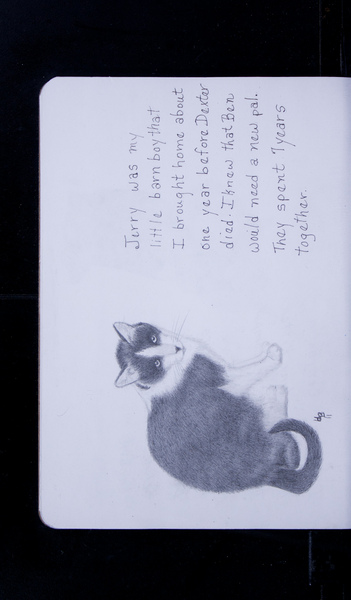 Jerry was my
little barn boy that
I brought home about
one year before Dexter
died. I knew that Ben
would need a new pal.
They spent 7 years
together.